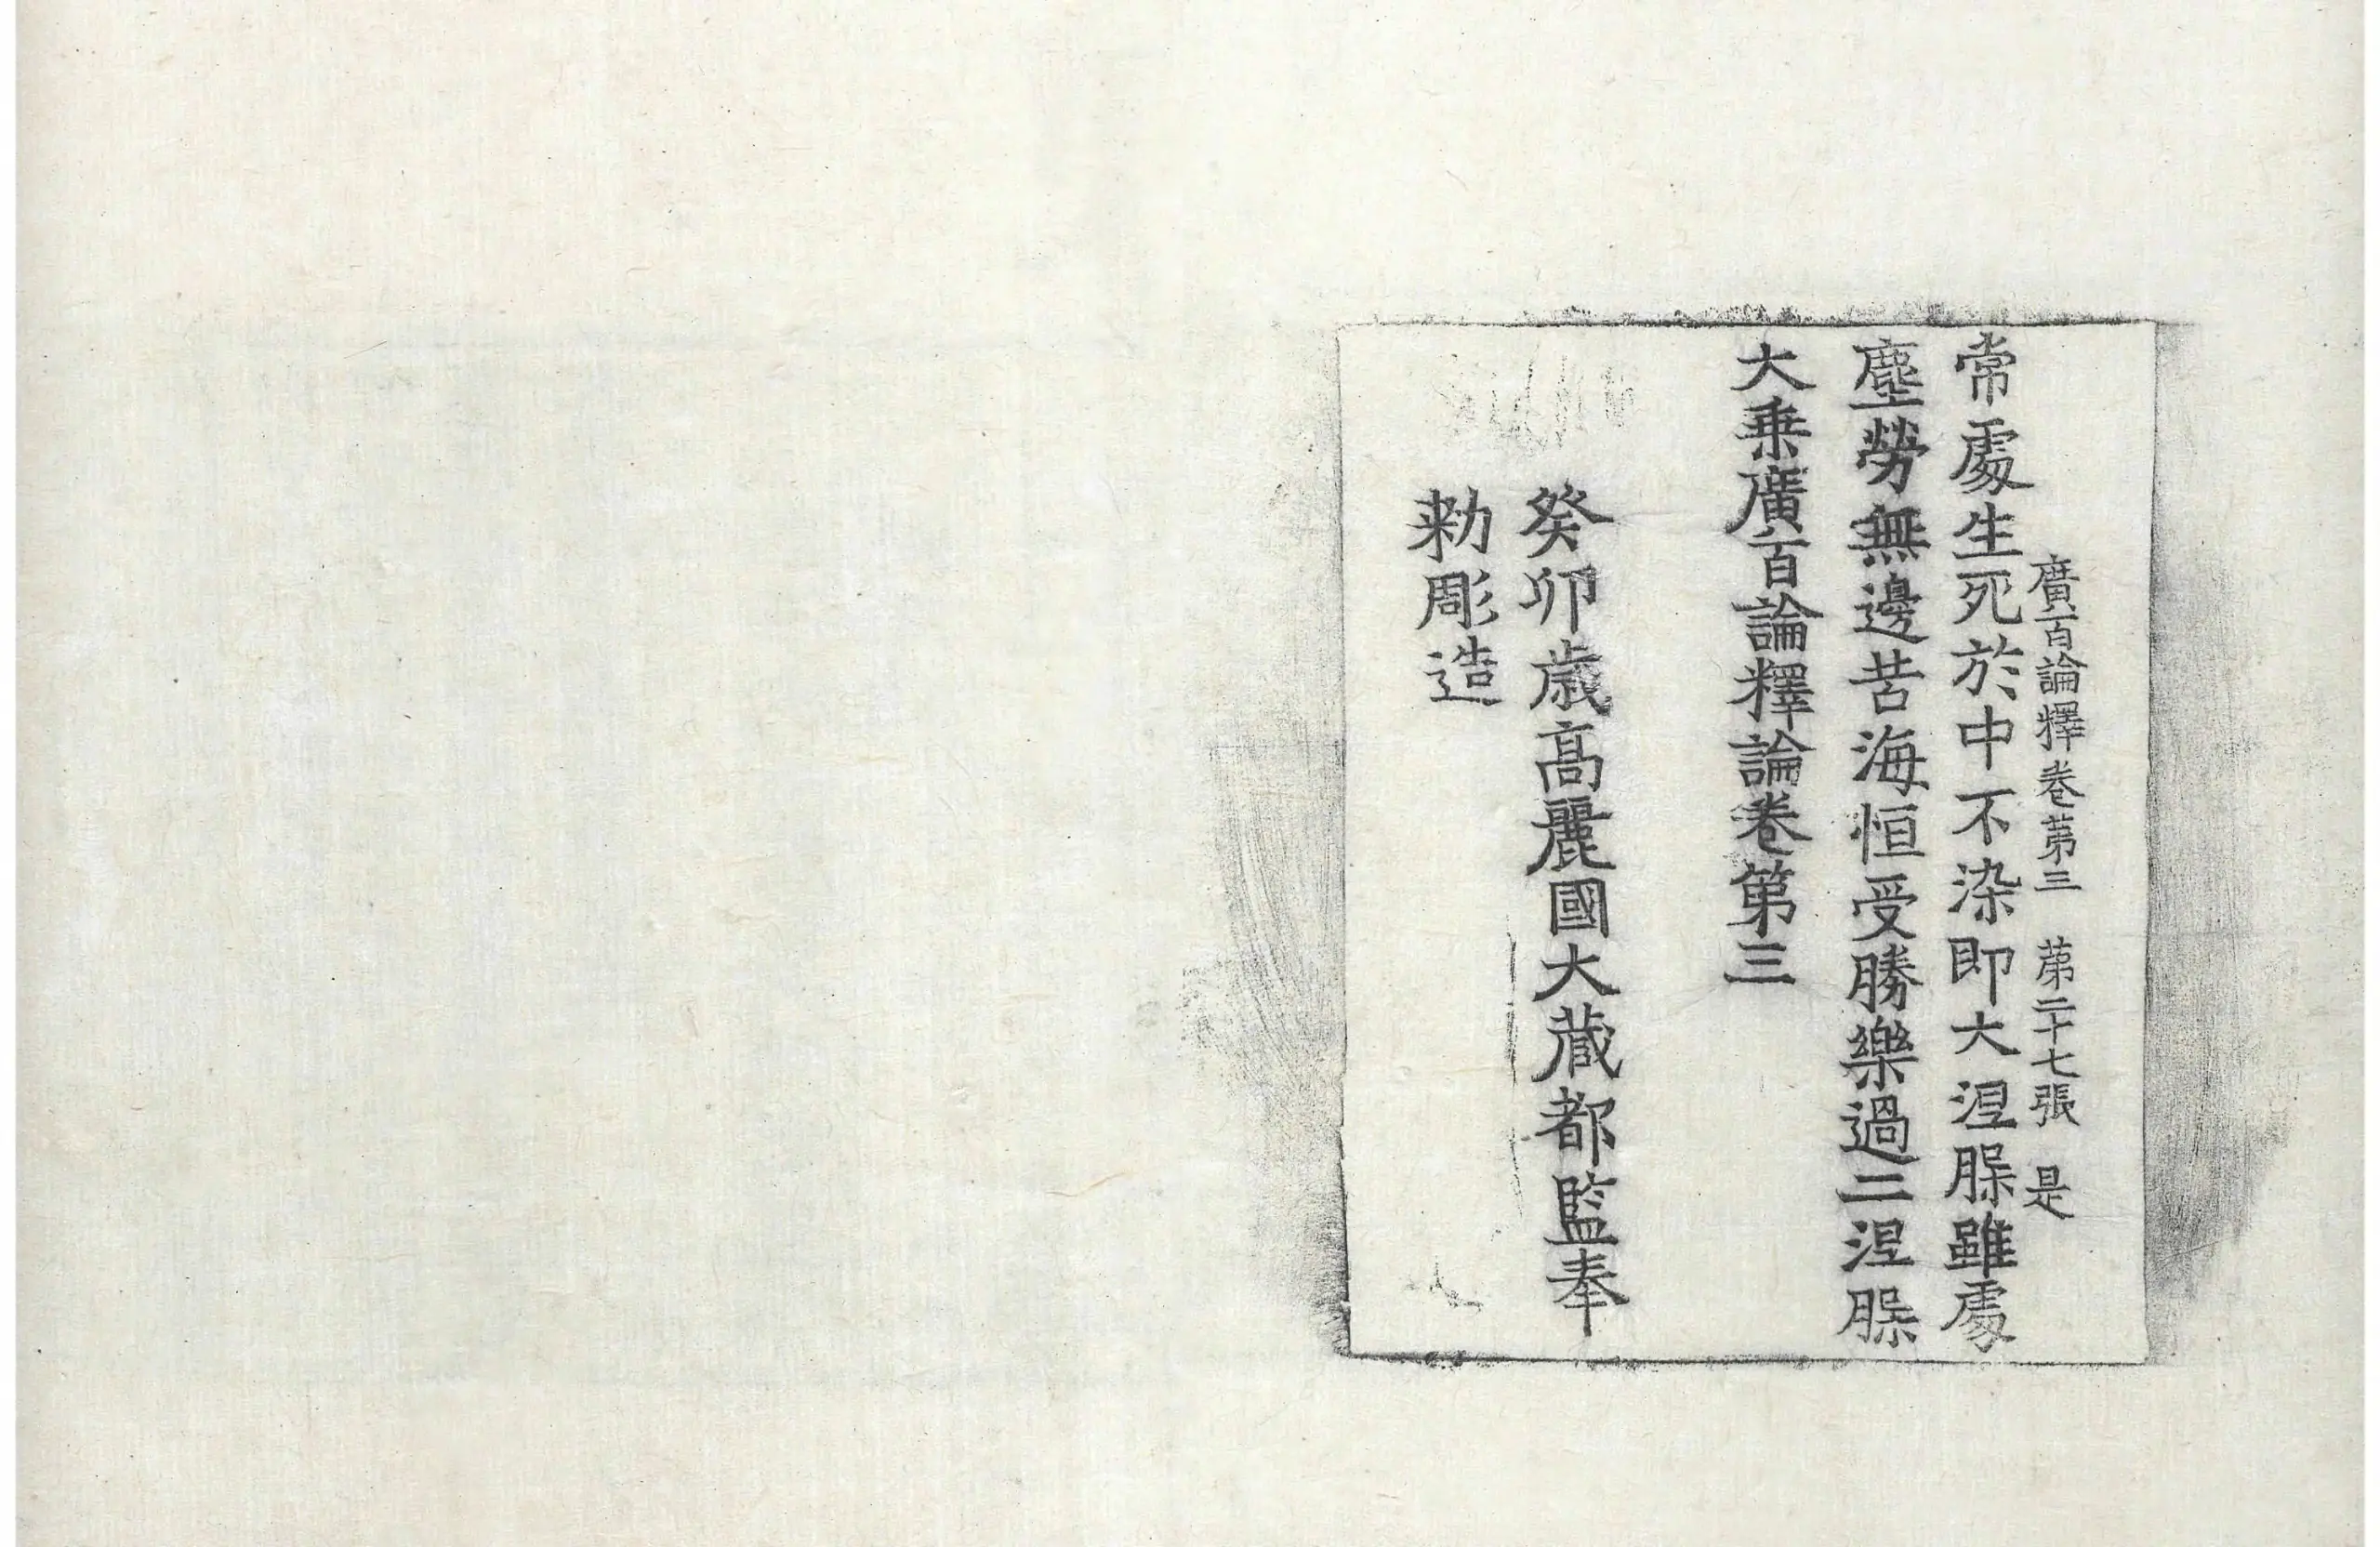 廣百論釋卷苐三 苐二十七張 是
常處生死於中不染即大涅槃雖處
塵勞無邊苦海恒受勝樂過二涅槃
大乗廣百論釋論卷第三
癸卯歲高麗國大藏都監奉
勑彫造